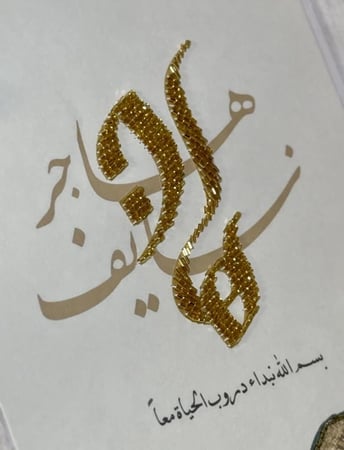 هاجر
نايف
بسم الله نبداء دروب الحياة معاً